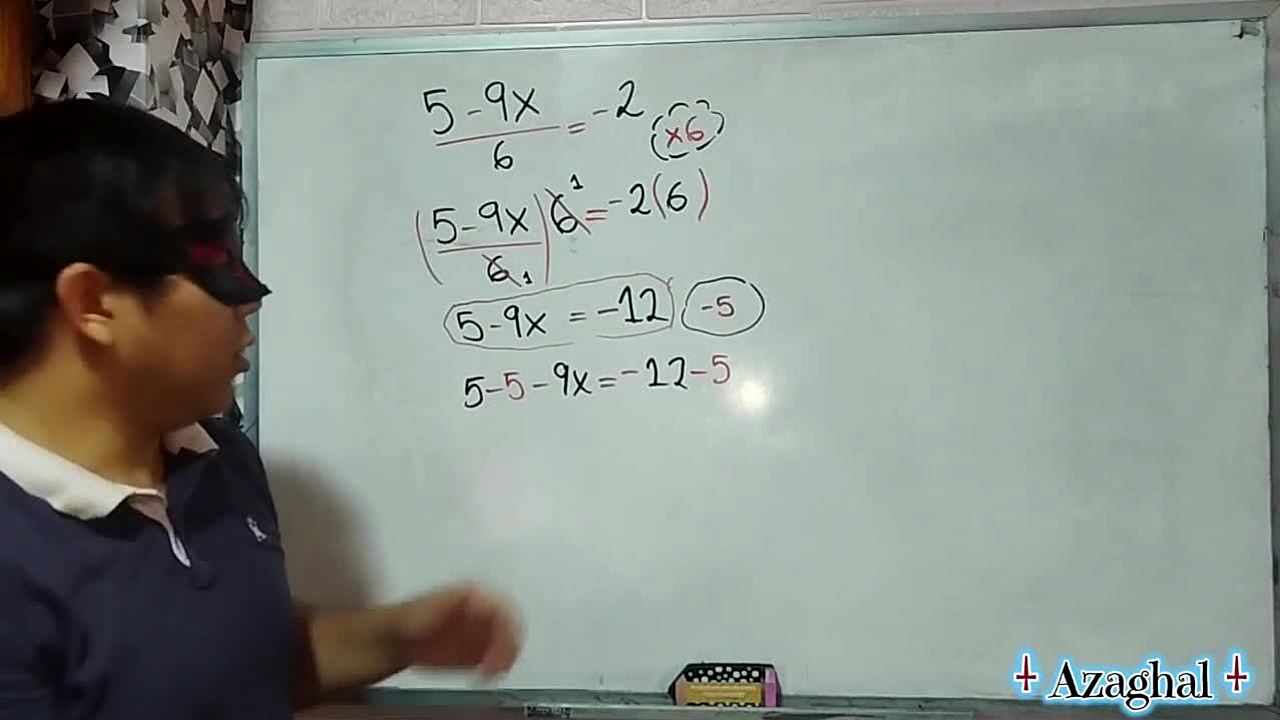 5-9x/6 = -2 ×6
(5-9x/6 1) 6 1 = -2(6)
5-9x = -12 -5
5-5-9x = -12-5
Azaghal